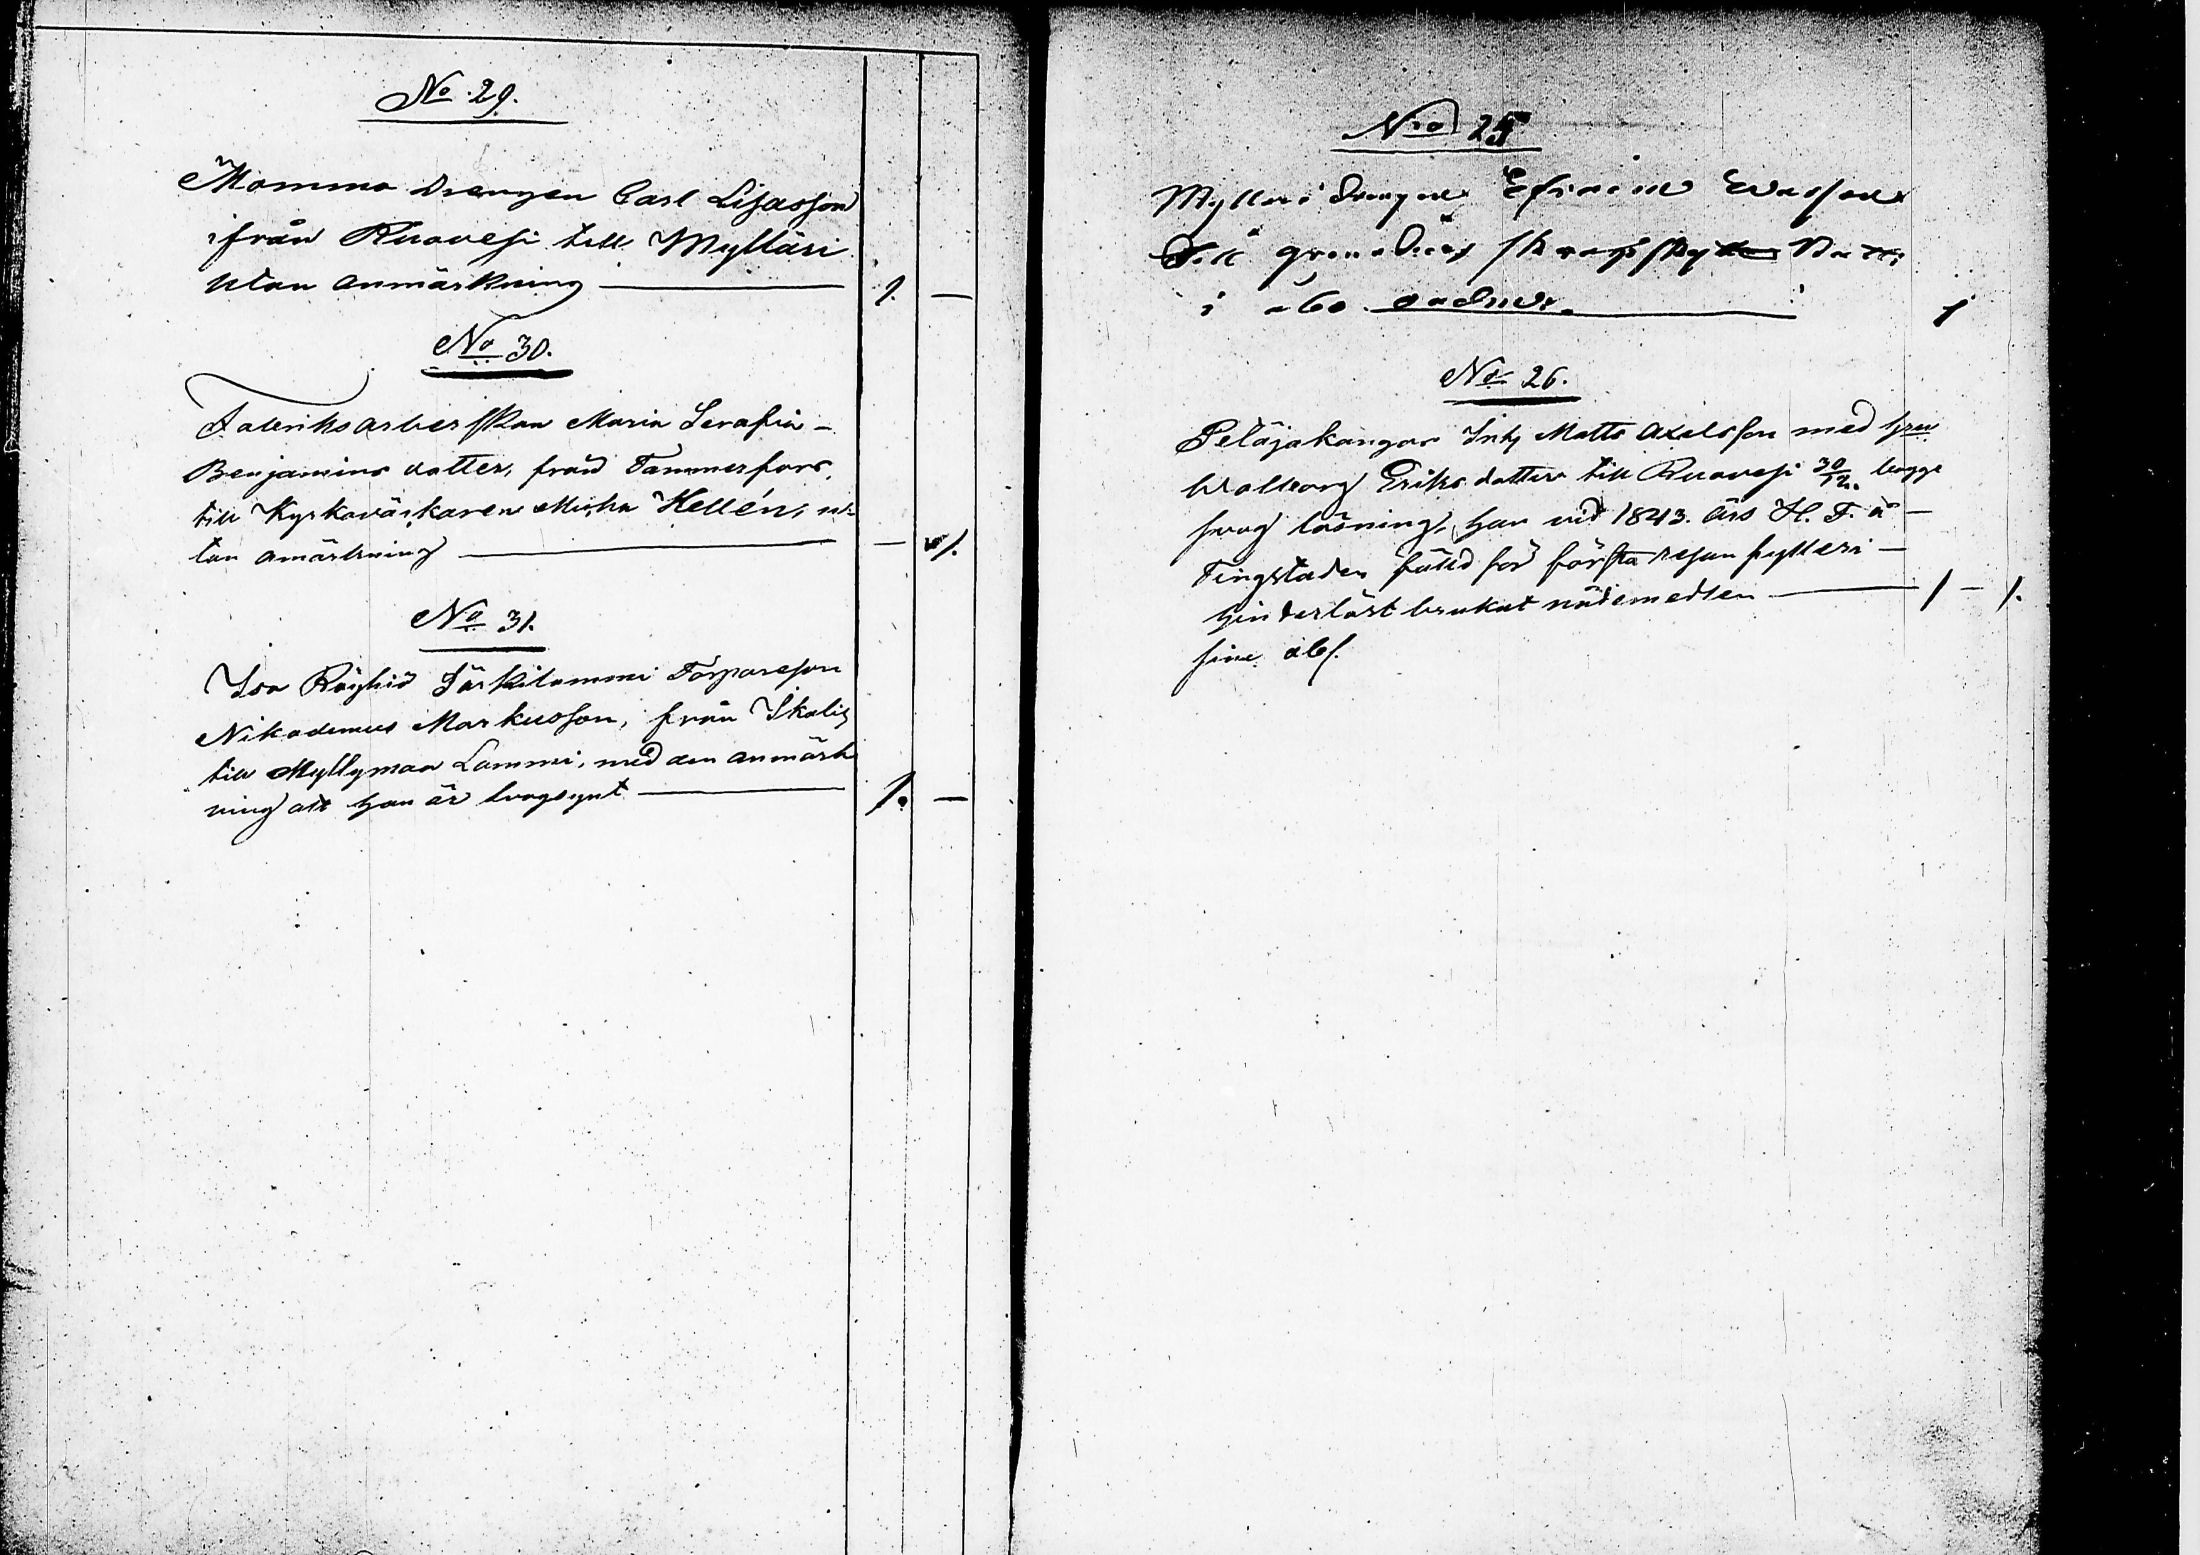 No. 29.
Momma drengen Carl Lisasson
ifrån Ruovesi till Mylläri
utan anmärkning — 1. —
No 30.
Fabriksarberskan Maria Serafia -
Benjamins dotter, från Tammerfors,
till Kyrkoväckaren Micha Hellén, u-
tan amärkning — — 1.
No 31.
Iso Röyhiö Särkilammi Torpareson
Nikodemus Markusson, från Ikalis
till Myllymaa Lammi, med den anmärk
ning att han är svagsynt — 1. —
Nro 25
Mylleri Drengen Efraim
Till grenadier skarpskytte
i åbo 1
No 26.
Peläjakangas Inh Matts Axelsson med hru
Walborg Eriks dotter till Ruovesi 30/12. bägge
svag läsning, han vid 1843. års H. T. å -
Tingstaden fälld för första resan fylleri -
hinderlöst brukat nådemedlen — 1 - 1.
sine abs.